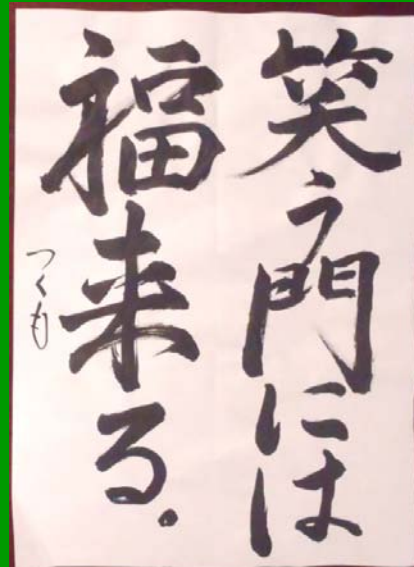 笑う門には
福来る.
つくも